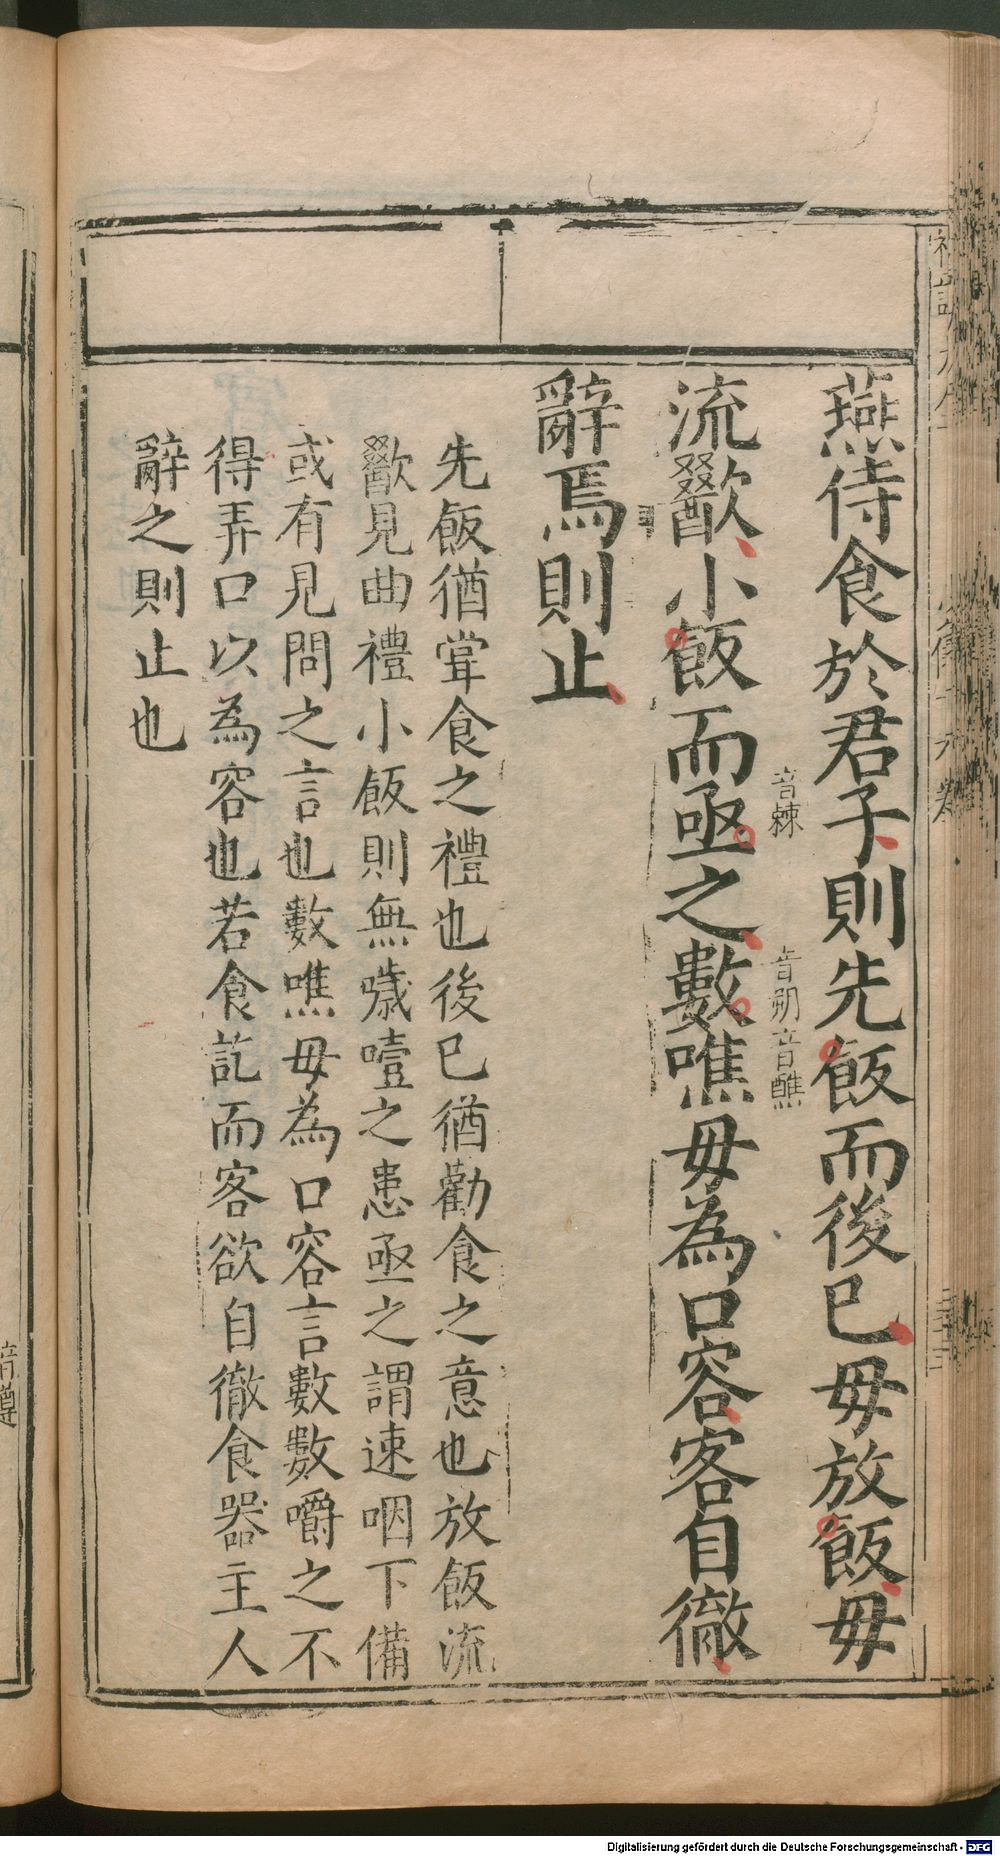 燕侍食於君子則先飯而後已毋放飯毋
流歠小飯而亟之數噍毋為口容客自徹
音棘
音朔音醮
辭焉則止
先飯猶甞食之禮也後已猶勸食之意也放飯流
歠見曲禮小飯則無噦噎之患亟之謂速咽下備
或有見問之言也數噍毋為口容言數數嚼之不
得弄口以為容也若食訖而客欲自徹食器主人
辭之則止也
Digitalisierung gefördert durch die Deutsche Forschungsgemeinschaft - DFG